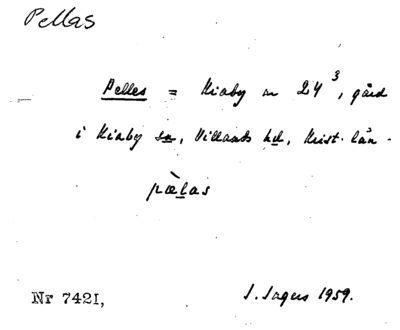 Pellas
Pelles = Kiaby nr 24³, gård
i Kiaby sn, Villands hd, Krist. län.
pæ̀las
Nr 7421, 1959.